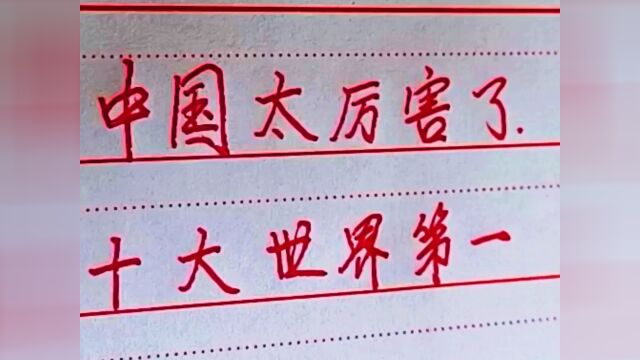 中国太厉害了.
十大世界第一